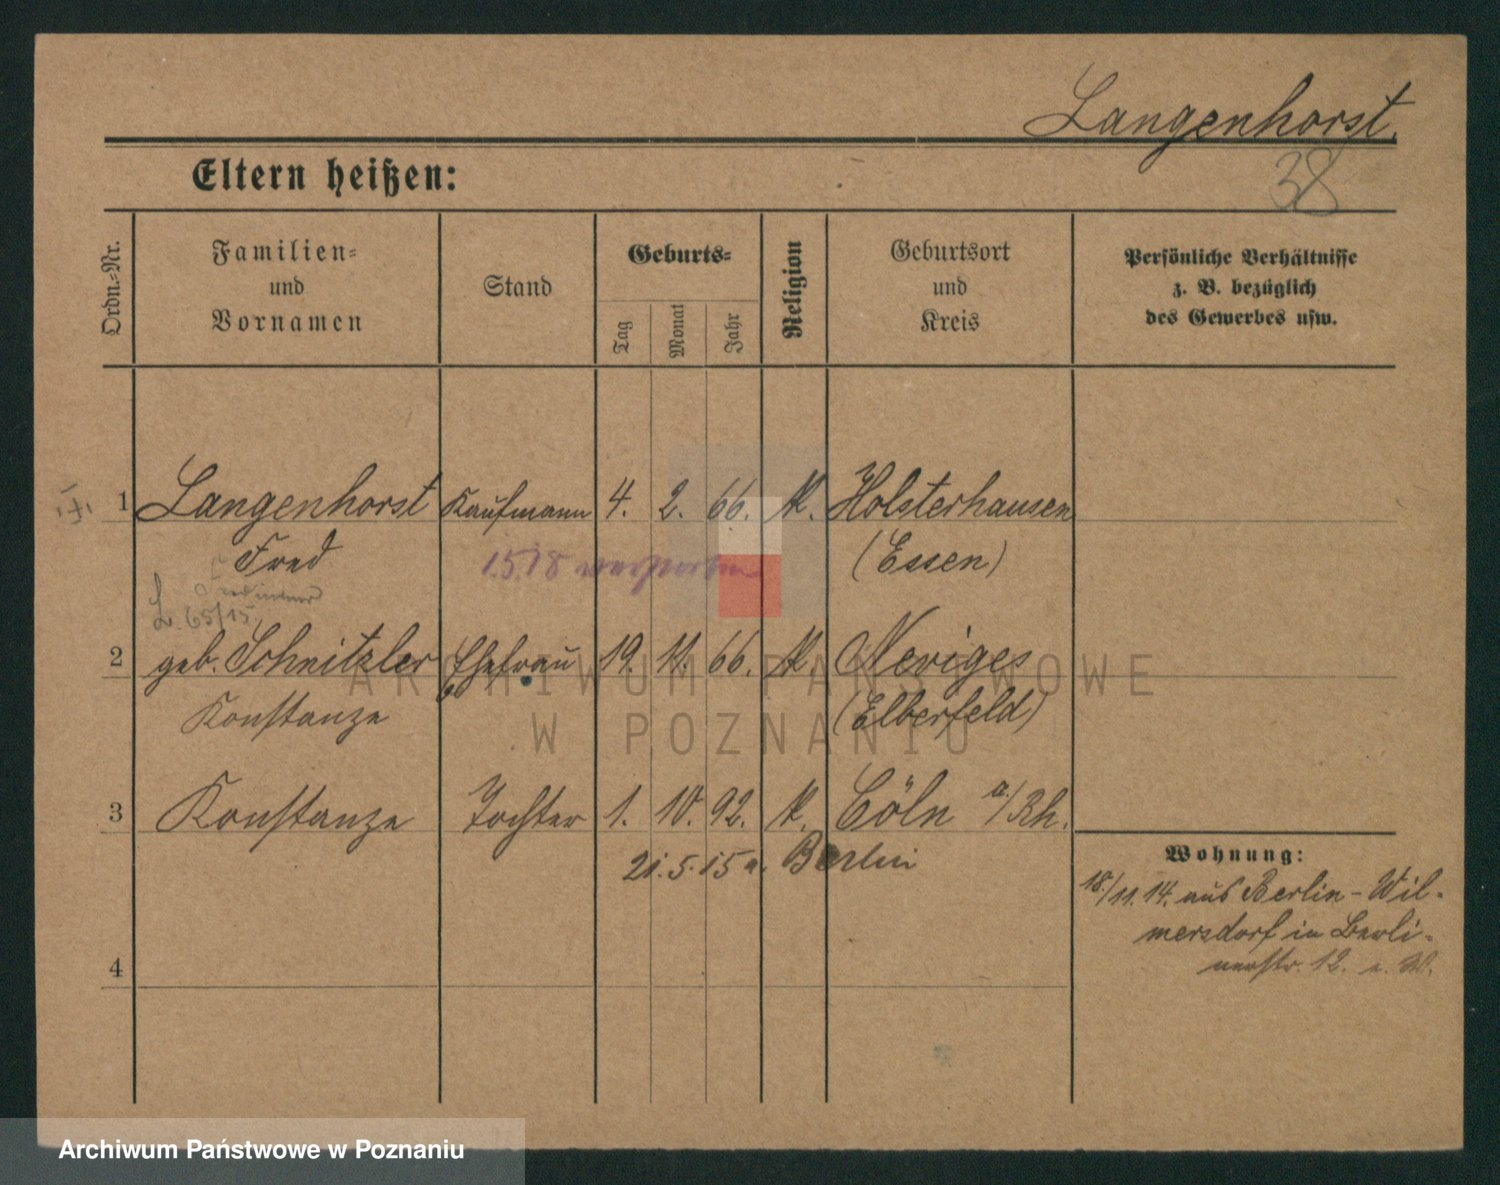 Langenhorst.
38
Eltern heißen:
Ordn.-Nr.
Familien-
und
Vornamen
Stand
Geburts-
Tag
Monat
Jahr
Religion
Geburtsort
und
Kreis
Persönliche Verhältnisse
z. B. bezüglich
des Gewerbes usw.
1 Langenhorst Kaufmann 4. 2. 66. K. Holsterhausen
Fred (Essen)
1.5.18
L. 65/15
2 geb. Schnitzler Ehefrau 19. 11. 66. K. Neviges
Konstanze (Elberfeld)
3 Konstanze Tochter 1. 10. 92. K. Cöln a/Rh.
21.5.15 n. Berlin
4
Wohnung:
18./11.14. aus Berlin-Wil-
mersdorf in Berli-
nerstr. 12.
ARCHIWUM PAŃSTWOWE
W POZNANIU
Archiwum Państwowe w Poznaniu